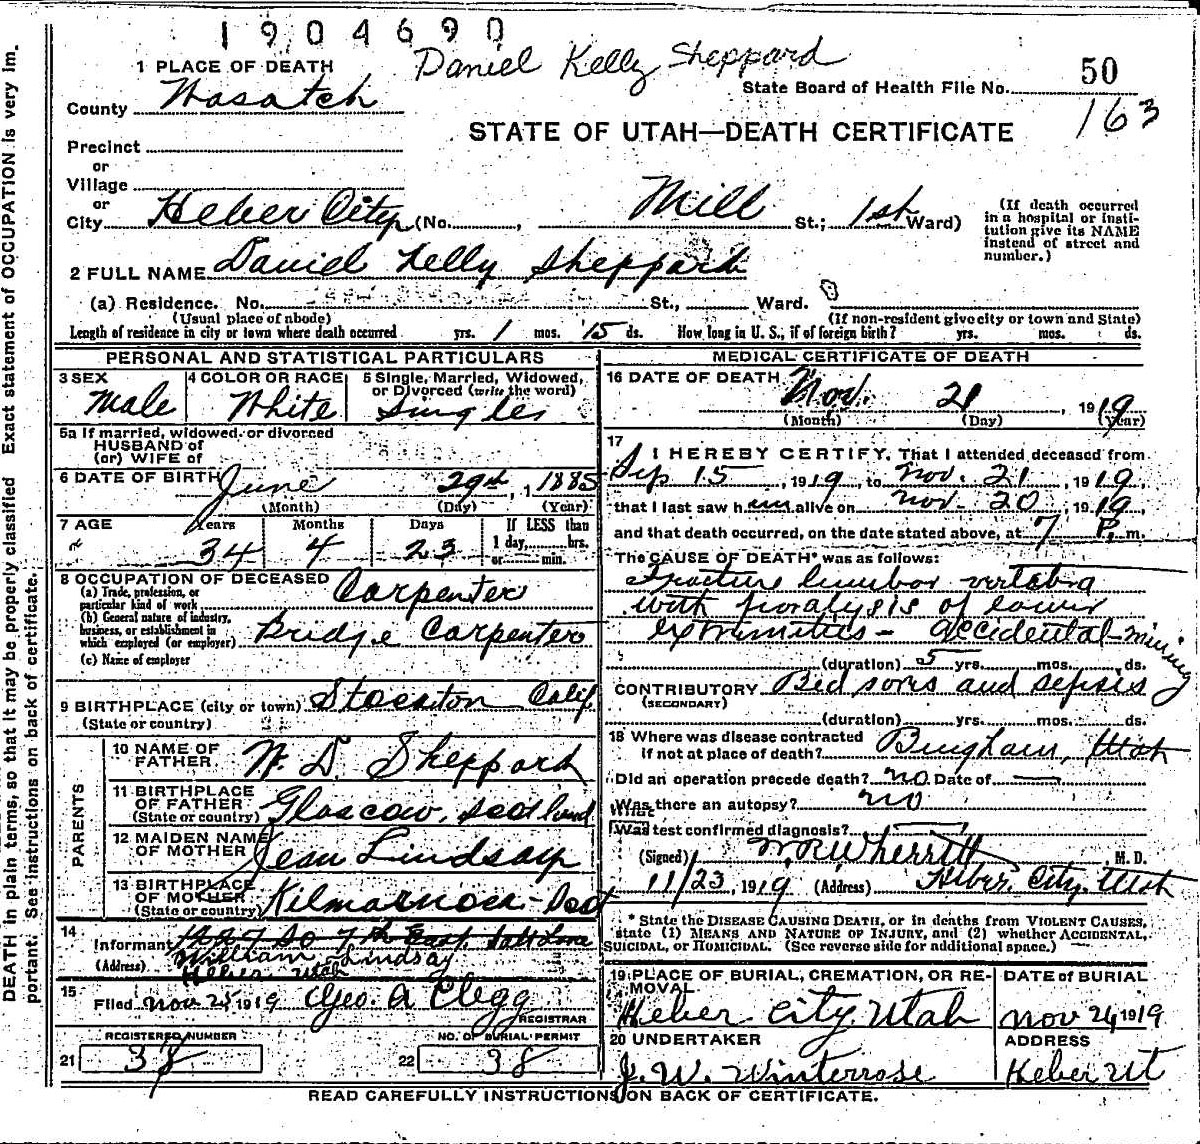 1904690
Daniel Kelly Sheppard
1 PLACE OF DEATH
County Wasatch
State Board of Health File No. 50
163
STATE OF UTAH—DEATH CERTIFICATE
Precinct
or
Village
or
City Heber City (No. , Mill St.; 1st Ward)
(If death occurred in a hospital or institution give its NAME instead of street and number.)
2 FULL NAME Daniel Kelly Sheppard
(a) Residence. No. St., Ward.
(Usual place of abode) (If non-resident give city or town and State)
Length of residence in city or town where death occurred yrs. 1 mos. 15 ds. How long in U. S., if of foreign birth? yrs. mos. ds.
PERSONAL AND STATISTICAL PARTICULARS
3 SEX Male
4 COLOR OR RACE White
5 Single, Married, Widowed, or Divorced (write the word) Single
5a If married, widowed or divorced
HUSBAND of
(or) WIFE of
6 DATE OF BIRTH June 29th, 1885
(Month) (Day) (Year)
7 AGE Years Months Days If LESS than
34 4 23 1 day, hrs.
or min.
8 OCCUPATION OF DECEASED
(a) Trade, profession, or particular kind of work Carpenter
(b) General nature of industry, business, or establishment in which employed (or employer) Bridge Carpenter
(c) Name of employer
9 BIRTHPLACE (city or town) Stockton Calif.
(State or country)
PARENTS
10 NAME OF FATHER W. D. Sheppard
11 BIRTHPLACE OF FATHER (State or country) Glascow, Scotland
12 MAIDEN NAME OF MOTHER Jean Lindsay
13 BIRTHPLACE OF MOTHER (State or country) Kilmarnock - Scot
14
Informant 1227 So 7th East Salt Lake
William Lindsay
(Address) Heber Utah
15
Filed Nov 25, 1919 Geo. A Clegg
REGISTRAR
REGISTERED NUMBER NO. OF BURIAL PERMIT
21 38 22 38
MEDICAL CERTIFICATE OF DEATH
16 DATE OF DEATH Nov. 21, 1919
(Month) (Day) (Year)
17
I HEREBY CERTIFY, That I attended deceased from
Sep 15, 1919 to Nov. 21, 1919,
that I last saw him alive on Nov. 20, 1919,
and that death occurred, on the date stated above, at 7 P. m.
The CAUSE OF DEATH* was as follows:
Fracture lumbar vertabra
with paralysis of lower
extremities - accidental-mining
(duration) 5 yrs. mos. ds.
CONTRIBUTORY Bed sores and sepsis
(SECONDARY)
(duration) yrs. mos. ds.
18 Where was disease contracted
if not at place of death? Bingham, Utah
Did an operation precede death? no Date of —
Was there an autopsy? no
What
Was test confirmed diagnosis?
(Signed) W.R. Wherritt, M. D.
11/23, 1919 (Address) Heber City, Utah
* State the DISEASE CAUSING DEATH, or in deaths from VIOLENT CAUSES,
state (1) MEANS AND NATURE OF INJURY, and (2) whether ACCIDENTAL,
SUICIDAL, or HOMICIDAL. (See reverse side for additional space.)
19 PLACE OF BURIAL, CREMATION, OR REMOVAL
Heber City Utah
DATE of BURIAL
Nov 24, 1919
20 UNDERTAKER
J. W. Winterrose
ADDRESS
Heber Ut
READ CAREFULLY INSTRUCTIONS ON BACK OF CERTIFICATE.
DEATH in plain terms, so that it may be properly classified Exact statement of OCCUPATION is very im-
portant. See instructions on back of certificate.